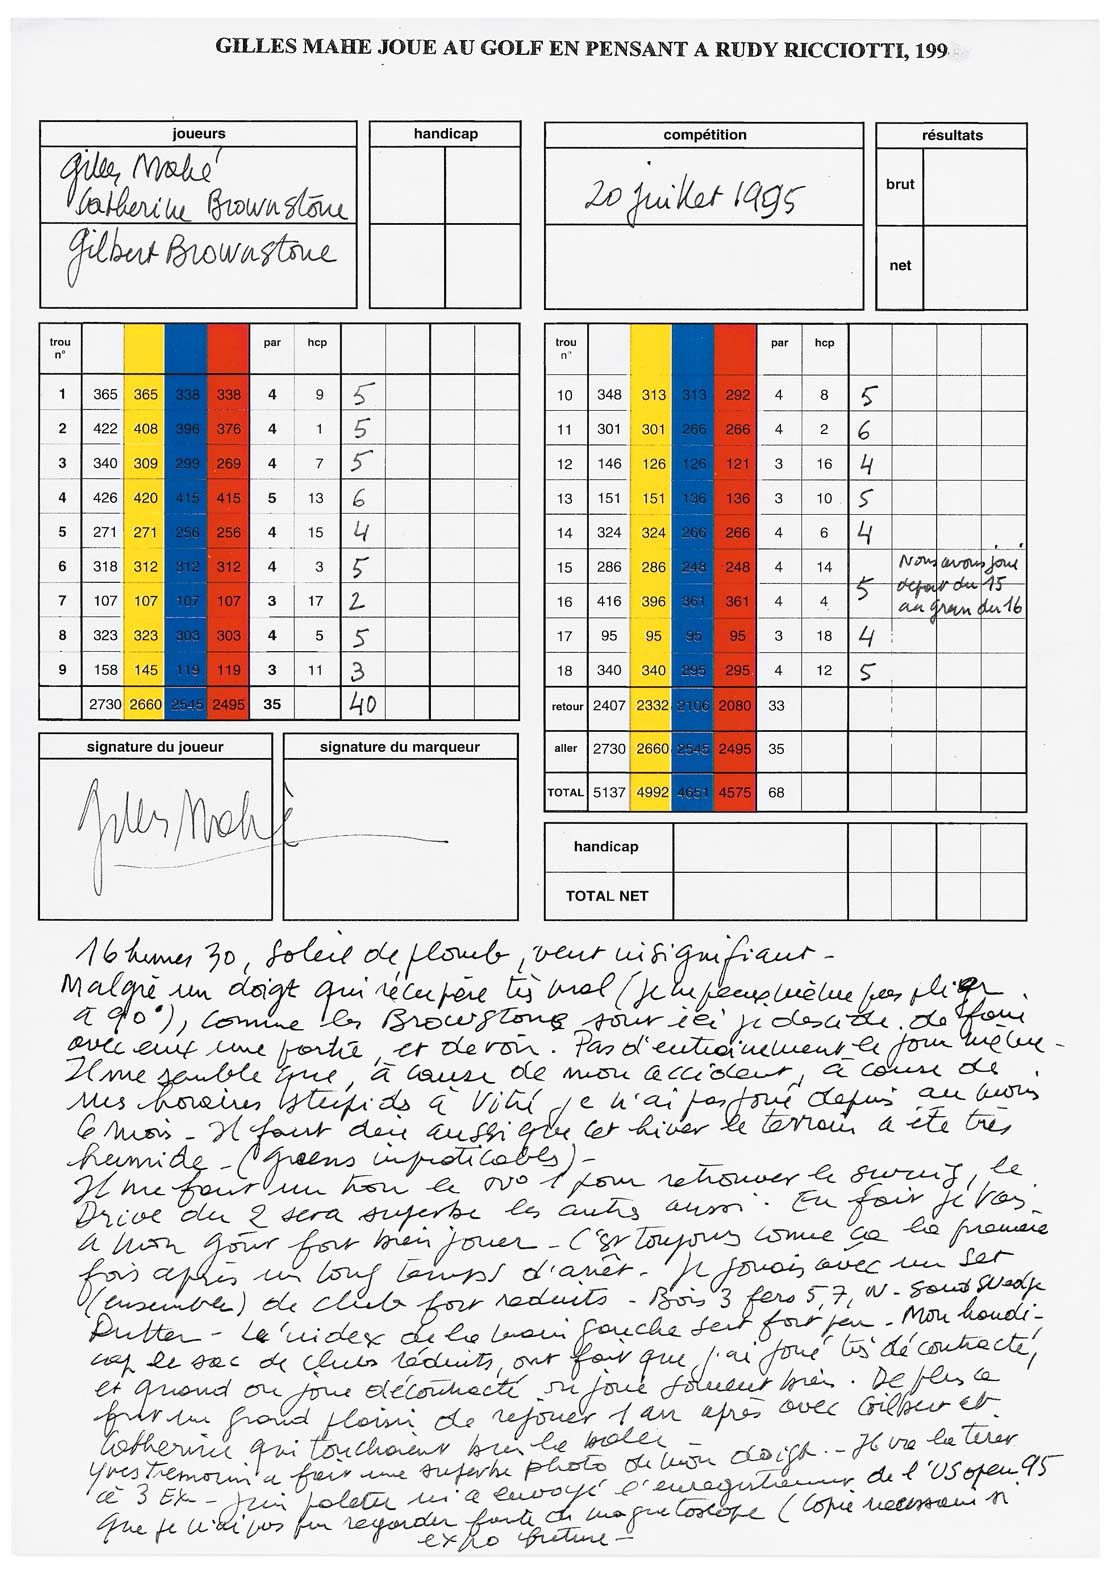 GILLES MAHE JOUE AU GOLF EN PENSANT A RUDY RICCIOTTI, 199
joueurs handicap
Gilles Mahé
Catherine Brownstone
Gilbert Brownstone
compétition résultats
20 juillet 1995 brut
net
trou n° par hcp
1 365 365 338 338 4 9 5
2 422 408 396 376 4 1 5
3 340 309 299 269 4 7 5
4 426 420 415 415 5 13 6
5 271 271 256 256 4 15 4
6 318 312 312 312 4 3 5
7 107 107 107 107 3 17 2
8 323 323 303 303 4 5 5
9 158 145 119 119 3 11 3
2730 2660 2545 2495 35 40
trou n° par hcp
10 348 313 313 292 4 8 5
11 301 301 266 266 4 2 6
12 146 126 126 121 3 16 4
13 151 151 136 136 3 10 5
14 324 324 266 266 4 6 4
15 286 286 248 248 4 14
16 416 396 361 361 4 4 5
Nous avons joué
départ du 15
au green du 16
17 95 95 95 95 3 18 4
18 340 340 295 295 4 12 5
retour 2407 2332 2106 2080 33
aller 2730 2660 2545 2495 35
TOTAL 5137 4992 4651 4575 68
signature du joueur signature du marqueur
Gilles Mahé
handicap
TOTAL NET
16 heures 30, soleil de plomb, vent insignifiant -
Malgré un doigt qui récupère très mal (je ne peux même pas plier
à 90°), comme les Brownstone sont ici je décide de faire
avec eux une partie, et de voir. Pas d'entrainement le jour même -
Il me semble que, à cause de mon accident, à cause de
mes horaires stupids à Vitré je n'ai pas joué depuis au moins
6 mois - Il faut dire aussi que cet hiver le terrain a été très
humide - (greens impraticables) -
Il me faut un trou le n° 1 pour retrouver le swing, le
Drive du 2 sera superbe les autres aussi. En fait je vais
à mon goût fort bien jouer - C'est toujours comme ça la première
fois après un long temps d'arrêt - Je jouais avec un set
(ensemble) de club fort réduits - Bois 3 fers 5, 7, W - Sand Wedge
Putter - L'index de la main gauche sert fort peu - Mon handi-
cap le sac de clubs réduits, ont fait que j'ai joué très décontracté,
et quand on joue décontracté on joue souvent bien. De plus ce
fut un grand plaisir de rejouer 1 an après avec Gilbert et
Catherine qui touchaient bien la balle
Yves Trémorin a fait une superbe photo de mon doigt - Il va la tirer
à 3 Ex - m'a envoyé l'enregistrement de l'US open 95
que je n'ai pas pu regarder faute de magnétoscope (copie necessaire si
expo future -